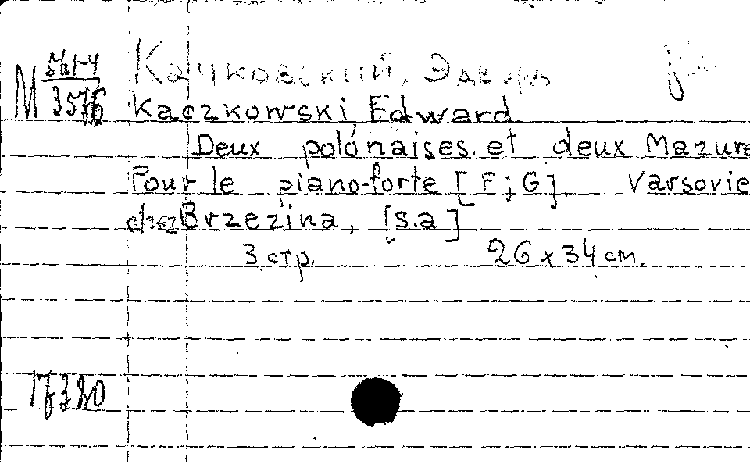 Качковский, Эдвард
М 561-4
3576
Kaczkowski Edward
Deux polonaises et deux Mazure
Pour le piano-forte [F; G]. Varsovie
chez Brzezina, [s.a]
3 стр. 26 x 34 см.